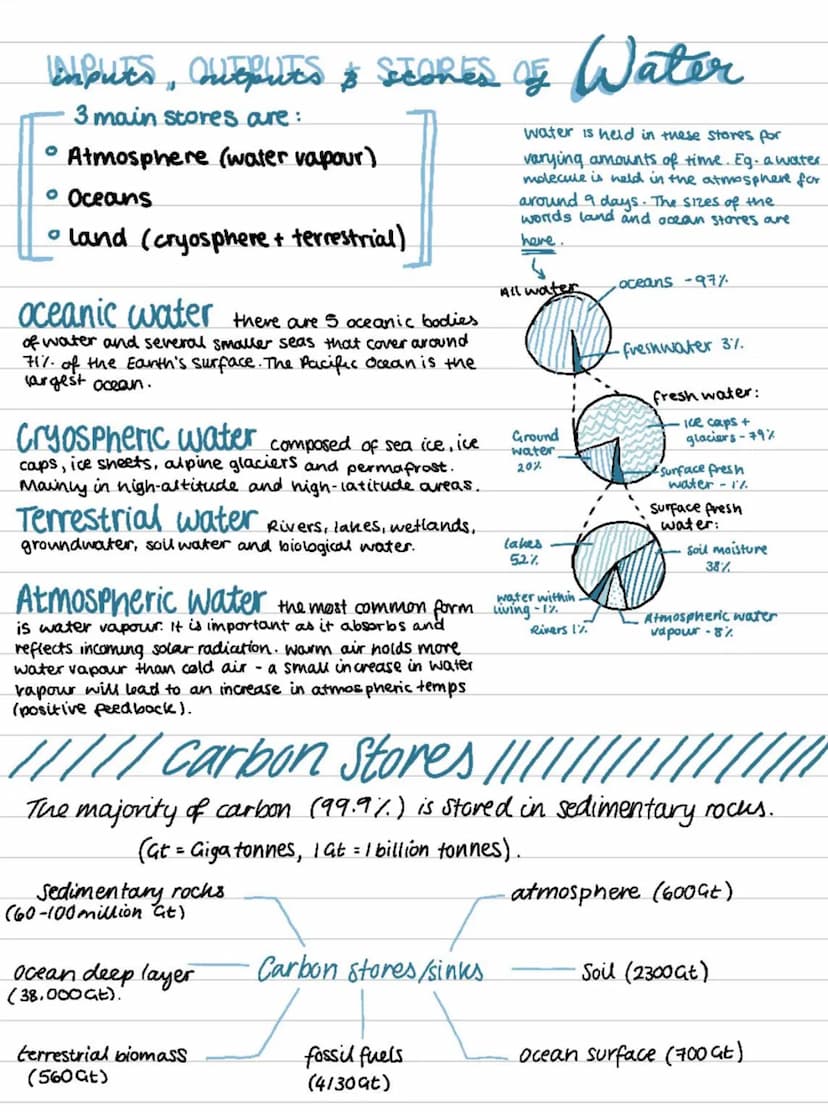 INPUTS, OUTPUTS & STORES OF Water
3 main stores are:
Atmosphere (water vapour)
Oceans
Land (cryosphere + terrestrial)
Water is held in these stores for
varying amounts of time. Eg. a water
molecule is held in the atmosphere for
around 9 days. The sizes of the
worlds land and ocean stores are
here.
All water
oceans - 97%
freshwater 3%
oceanic water there are 5 oceanic bodies
of water and several smaller seas that cover around
71% of the Earth's surface. The Pacific Ocean is the
largest ocean.
fresh water:
ice caps +
glaciers - 79%
Ground
water
20%
surface fresh
water - 1%
Cryospheric water composed of sea ice, ice
caps, ice sheets, alpine glaciers and permafrost.
Mainly in high-altitude and high-latitude areas.
Terrestrial water Rivers, lakes, wetlands,
groundwater, soil water and biological water.
Surface fresh
water:
lakes
52%
soil moisture
38%
water within
living - 1%
Rivers 1%
Atmospheric water
vapour - 8%
Atmospheric Water the most common form
is water vapour. It is important as it absorbs and
reflects incoming solar radiation. warm air holds more
water vapour than cold air - a small increase in water
vapour will lead to an increase in atmospheric temps
(positive feedback).
Carbon Stores
The majority of carbon (99.9%) is stored in sedimentary rocks.
(Gt = Giga tonnes, 1 Gt = 1 billion tonnes).
Sedimentary rocks
(60-100 million Gt)
atmosphere (600Gt)
ocean deep layer
(38,000Gt).
Carbon stores/sinks
Soil (2300Gt)
terrestrial biomass
(560Gt)
fossil fuels
(4130Gt)
ocean surface (700Gt)